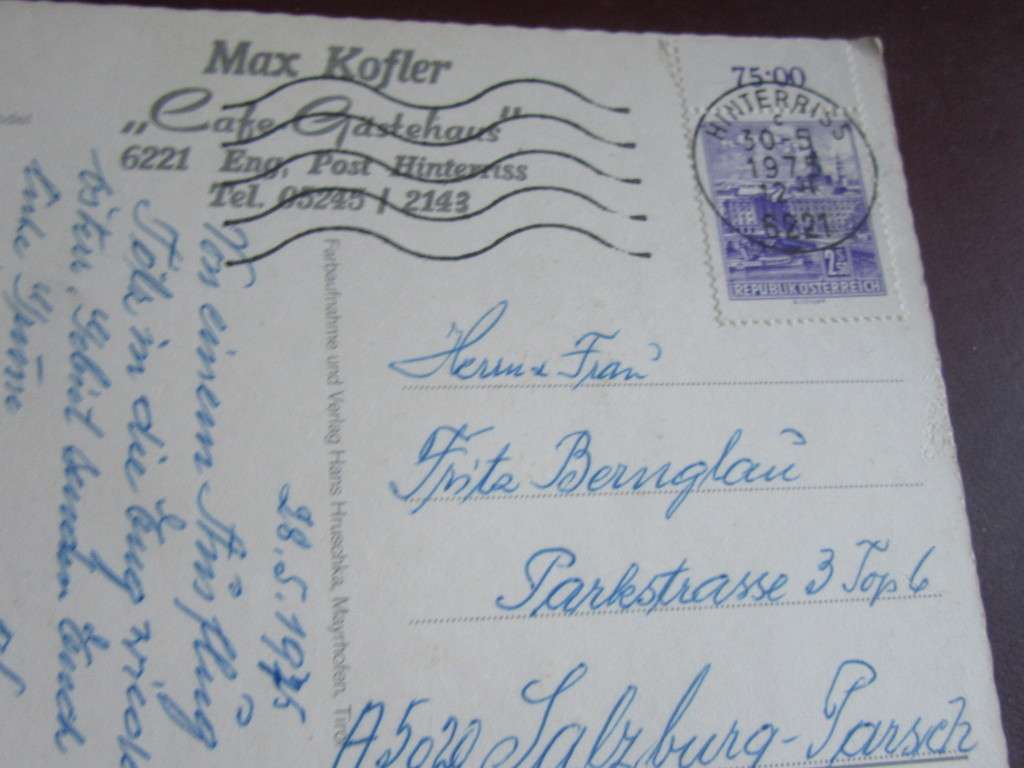 Max Kofler
„Cafe-Gästehaus"
6221 Eng, Post Hinterriss
Tel. 05245 / 2143
75·00
HINTERRISS
30-5
1975
6221
REPUBLIK ÖSTERREICH
Herrn u Frau
Fritz Bernglau
Parkstrasse 3 Top 6
A 5020 Salzburg-Parsch
Farbaufnahme und Verlag Hans Hruschka, Mayrhofen, Tirol
28.5.1975
Von einem Ausflug
in die Eng